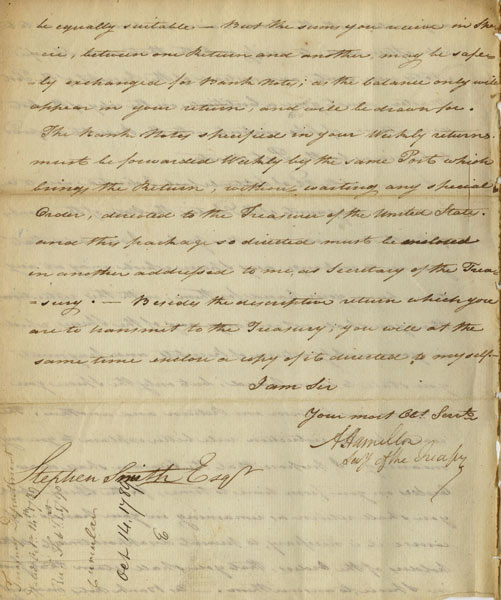 be equally suitable — But the sums you receive in Spe
cie, between one Return and another, may be safe-
-ly exchanged for Bank Notes; as the balance only will
appear in your return, and will be drawn for.
The Bank Notes specified in your Weekly returns
must be forwarded Weekly by the same Post which
brings the Return without waiting any special
Order, directed to the Treasurer of the United States.
and this package so directed must be enclosed
in another addressed to me, as Secretary of the Trea
-sury. — Besides the descriptive return which you
are to transmit to the Treasury; you will at the
same time enclose a copy of it directed to myself
I am Sir
Your most Obt. Servt.
A Hamilton
Secy of the Treasy
Stephen Smith Esqr
Circular
Oct 14, 1789